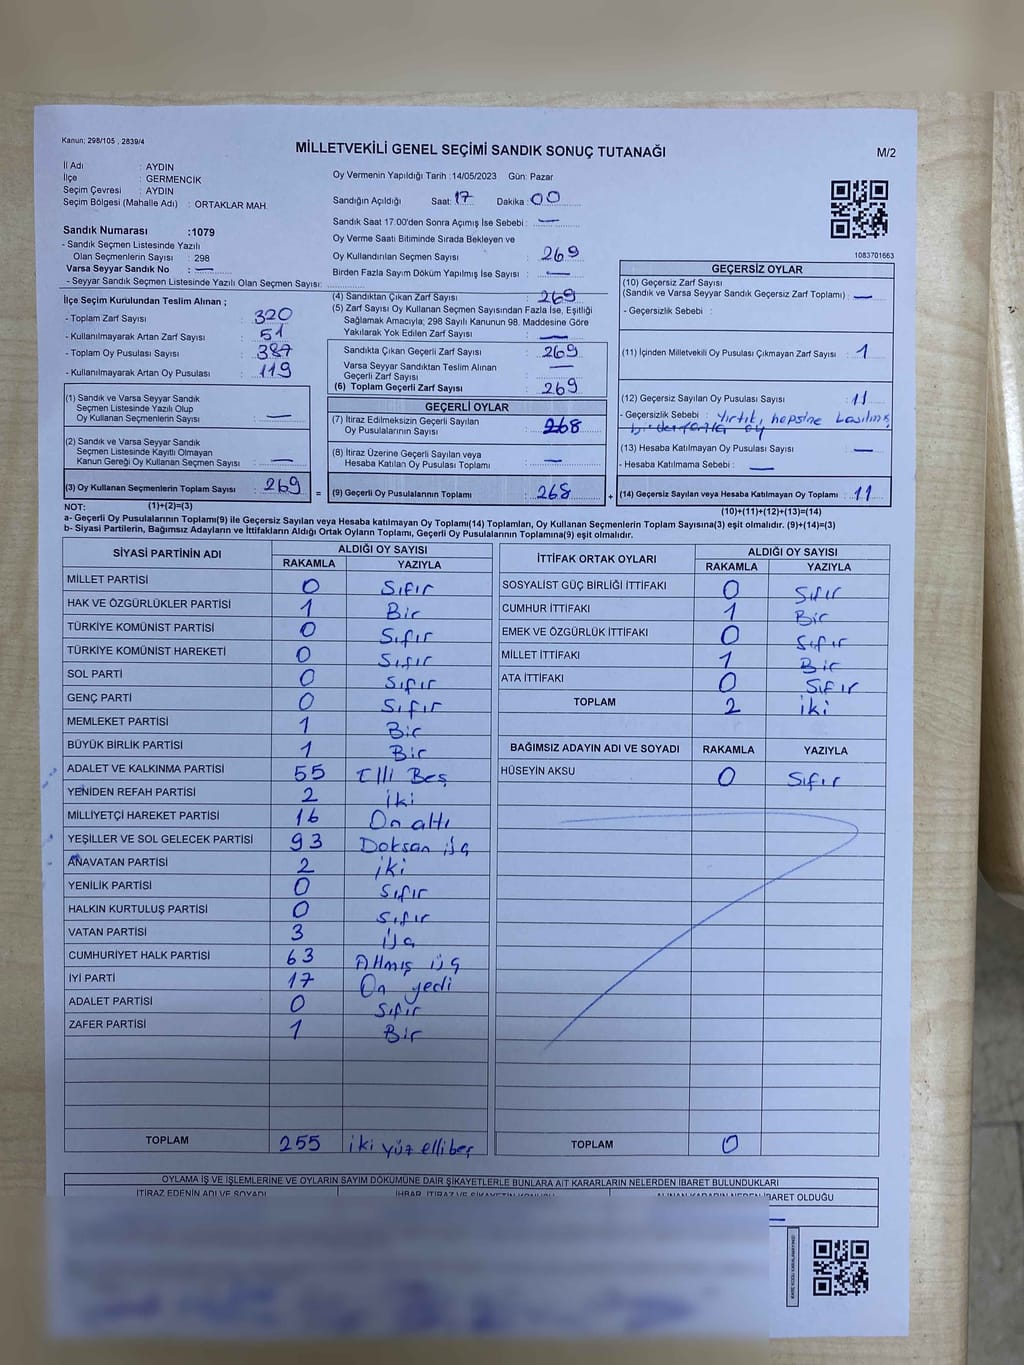 Kanun; 298/105 , 2839/4
MİLLETVEKİLİ GENEL SEÇİMİ SANDIK SONUÇ TUTANAĞI
M/2
İl Adı : AYDIN
İlçe : GERMENCİK
Seçim Çevresi : AYDIN
Seçim Bölgesi (Mahalle Adı) : ORTAKLAR MAH.
Sandık Numarası :1079
- Sandık Seçmen Listesinde Yazılı
Olan Seçmenlerin Sayısı : 298
Varsa Seyyar Sandık No : —
- Seyyar Sandık Seçmen Listesinde Yazılı Olan Seçmen Sayısı:
Oy Vermenin Yapıldığı Tarih :14/05/2023 Gün: Pazar
Sandığın Açıldığı Saat: 17 Dakika : 00
Sandık Saat 17:00'den Sonra Açımış İse Sebebi : —
Oy Verme Saati Bitiminde Sırada Bekleyen ve
Oy Kullandırılan Seçmen Sayısı : 269
Birden Fazla Sayım Döküm Yapılmış İse Sayısı : —
1083701663
İlçe Seçim Kurulundan Teslim Alınan ;
- Toplam Zarf Sayısı : 320
- Kullanılmayarak Artan Zarf Sayısı : 51
- Toplam Oy Pusulası Sayısı : 387
- Kullanılmayarak Artan Oy Pusulası : 119
(1) Sandık ve Varsa Seyyar Sandık
Seçmen Listesinde Yazılı Olup
Oy Kullanan Seçmenlerin Sayısı : —
(2) Sandık ve Varsa Seyyar Sandık
Seçmen Listesinde Kayıtlı Olmayan
Kanun Gereği Oy Kullanan Seçmen Sayısı : —
(3) Oy Kullanan Seçmenlerin Toplam Sayısı : 269
(4) Sandıktan Çıkan Zarf Sayısı : 269
(5) Zarf Sayısı Oy Kullanan Seçmen Sayısından Fazla İse, Eşitliği
Sağlamak Amacıyla; 298 Sayılı Kanunun 98. Maddesine Göre
Yakılarak Yok Edilen Zarf Sayısı : —
Sandıkta Çıkan Geçerli Zarf Sayısı : 269
Varsa Seyyar Sandıktan Teslim Alınan
Geçerli Zarf Sayısı : —
(6) Toplam Geçerli Zarf Sayısı : 269
GEÇERLİ OYLAR
(7) İtiraz Edilmeksizin Geçerli Sayılan
Oy Pusulalarının Sayısı : 268
(8) İtiraz Üzerine Geçerli Sayılan veya
Hesaba Katılan Oy Pusulası Toplamı : —
= (9) Geçerli Oy Pusulalarının Toplamı : 268
GEÇERSİZ OYLAR
(10) Geçersiz Zarf Sayısı
(Sandık ve Varsa Seyyar Sandık Geçersiz Zarf Toplamı) : —
- Geçersizlik Sebebi :
(11) İçinden Milletvekili Oy Pusulası Çıkmayan Zarf Sayısı : 1
(12) Geçersiz Sayılan Oy Pusulası Sayısı : 11
- Geçersizlik Sebebi : Yırtık, hepsine basılmış
birden fazla oy
(13) Hesaba Katılmayan Oy Pusulası Sayısı : —
- Hesaba Katılmama Sebebi : —
+ (14) Geçersiz Sayılan veya Hesaba Katılmayan Oy Toplamı : 11
NOT: (1)+(2)=(3) (10)+(11)+(12)+(13)=(14)
a- Geçerli Oy Pusulalarının Toplamı(9) ile Geçersiz Sayılan veya Hesaba katılmayan Oy Toplamı(14) Toplamları, Oy Kullanan Seçmenlerin Toplam Sayısına(3) eşit olmalıdır. (9)+(14)=(3)
b- Siyasi Partilerin, Bağımsız Adayların ve İttifakların Aldığı Ortak Oyların Toplamı, Geçerli Oy Pusulalarının Toplamına(9) eşit olmalıdır.
SİYASİ PARTİNİN ADI ALDIĞI OY SAYISI
RAKAMLA YAZIYLA
MİLLET PARTİSİ 0 Sıfır
HAK VE ÖZGÜRLÜKLER PARTİSİ 1 Bir
TÜRKİYE KOMÜNİST PARTİSİ 0 Sıfır
TÜRKİYE KOMÜNİST HAREKETİ 0 Sıfır
SOL PARTİ 0 Sıfır
GENÇ PARTİ 0 Sıfır
MEMLEKET PARTİSİ 1 Bir
BÜYÜK BİRLİK PARTİSİ 1 Bir
ADALET VE KALKINMA PARTİSİ 55 Elli Beş
YENİDEN REFAH PARTİSİ 2 iki
MİLLİYETÇİ HAREKET PARTİSİ 16 On altı
YEŞİLLER VE SOL GELECEK PARTİSİ 93 Doksan üç
ANAVATAN PARTİSİ 2 iki
YENİLİK PARTİSİ 0 Sıfır
HALKIN KURTULUŞ PARTİSİ 0 Sıfır
VATAN PARTİSİ 3 üç
CUMHURİYET HALK PARTİSİ 63 Altmış üç
İYİ PARTİ 17 On yedi
ADALET PARTİSİ 0 Sıfır
ZAFER PARTİSİ 1 Bir
TOPLAM 255 iki yüz ellibeş
İTTİFAK ORTAK OYLARI ALDIĞI OY SAYISI
RAKAMLA YAZIYLA
SOSYALİST GÜÇ BİRLİĞİ İTTİFAKI 0 Sıfır
CUMHUR İTTİFAKI 1 Bir
EMEK VE ÖZGÜRLÜK İTTİFAKI 0 Sıfır
MİLLET İTTİFAKI 1 Bir
ATA İTTİFAKI 0 Sıfır
TOPLAM 2 iki
BAĞIMSIZ ADAYIN ADI VE SOYADI RAKAMLA YAZIYLA
HÜSEYİN AKSU 0 Sıfır
TOPLAM 0
OYLAMA İŞ VE İŞLEMLERİNE VE OYLARIN SAYIM DÖKÜMÜNE DAİR ŞİKAYETLERLE BUNLARA AİT KARARLARIN NELERDEN İBARET BULUNDUKLARI
İTİRAZ EDENİN ADI VE SOYADI İHBAR, İTİRAZ VE ŞİKAYETİN KONUSU ALINAN KARARIN NEDEN İBARET OLDUĞU
—